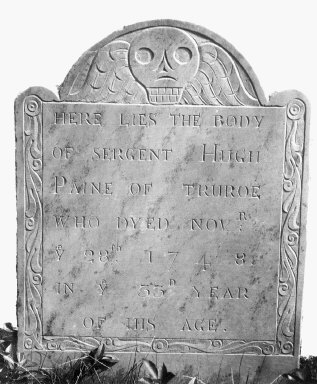 HERE LIES THE BODY
OF SERGENT HUGH
PAINE OF TRUROE
WHO DYED NOV.R
Ye 28th 1748
IN Ye 33D YEAR
OF HIS AGE.